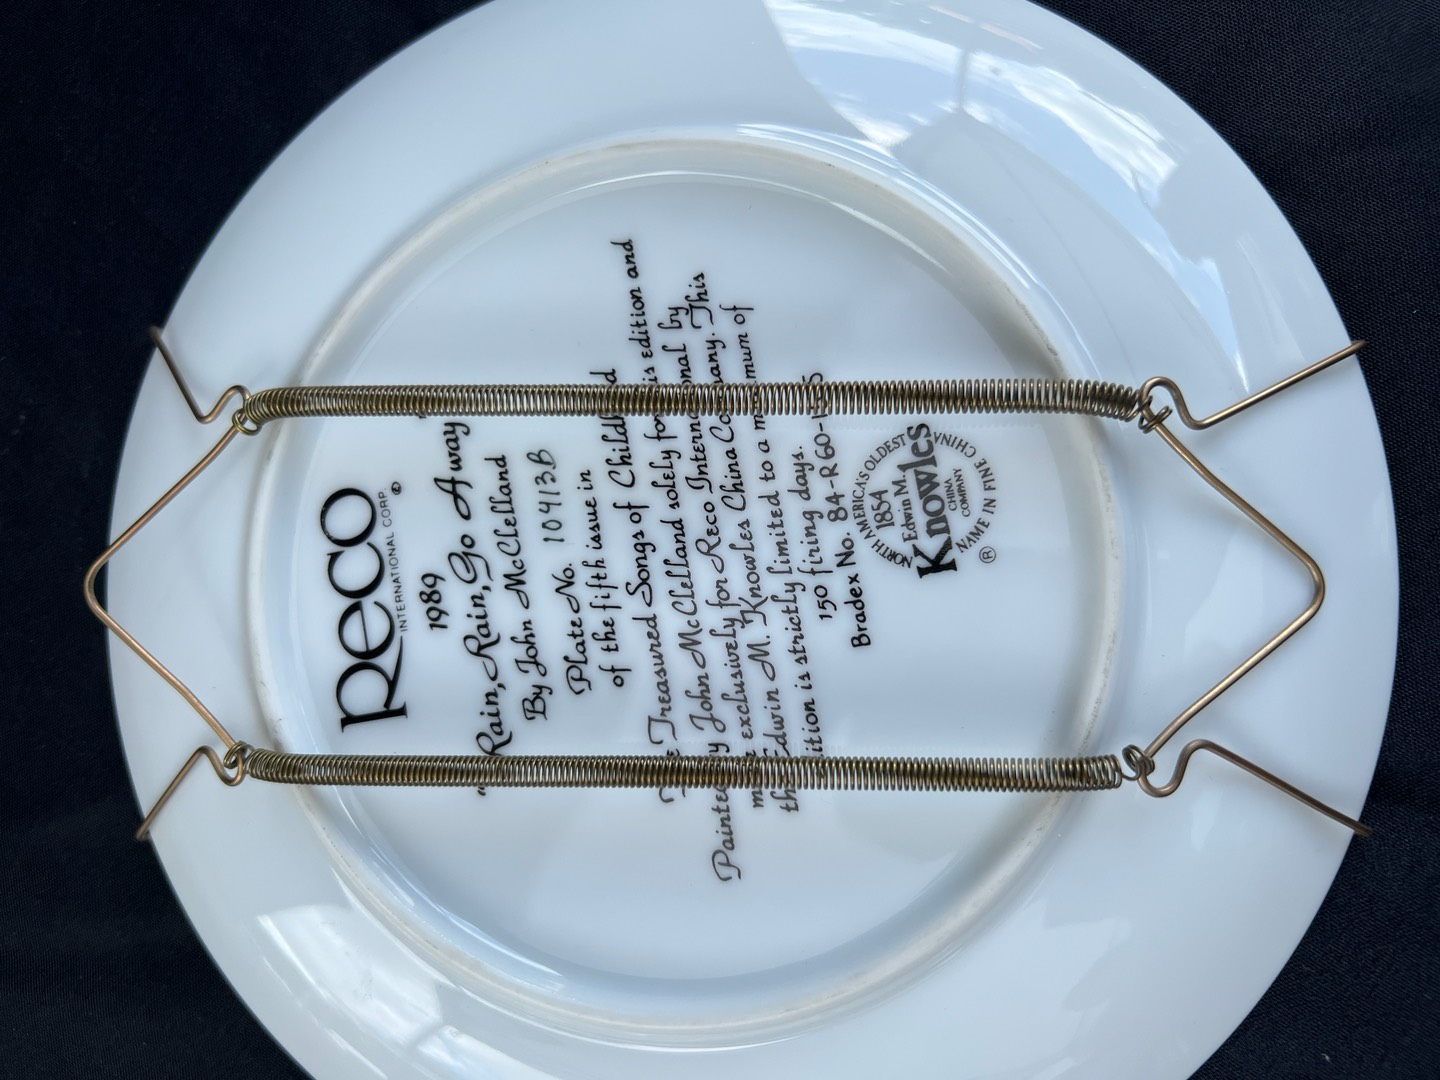 Reco
INTERNATIONAL CORP. ®
1989
"Rain, Rain, Go Away"
By John McClelland
Plate No. 10413B
of the fifth issue in
The Treasured Songs of Childhood
Painted by John McClelland solely for this edition and
made exclusively for Reco International by
the Edwin M. Knowles China Company. This
edition is strictly limited to a maximum of
150 firing days.
Bradex No.
NORTH AMERICA'S OLDEST
1854
Edwin M.
Knowles
CHINA
COMPANY
NAME IN FINE CHINA
®